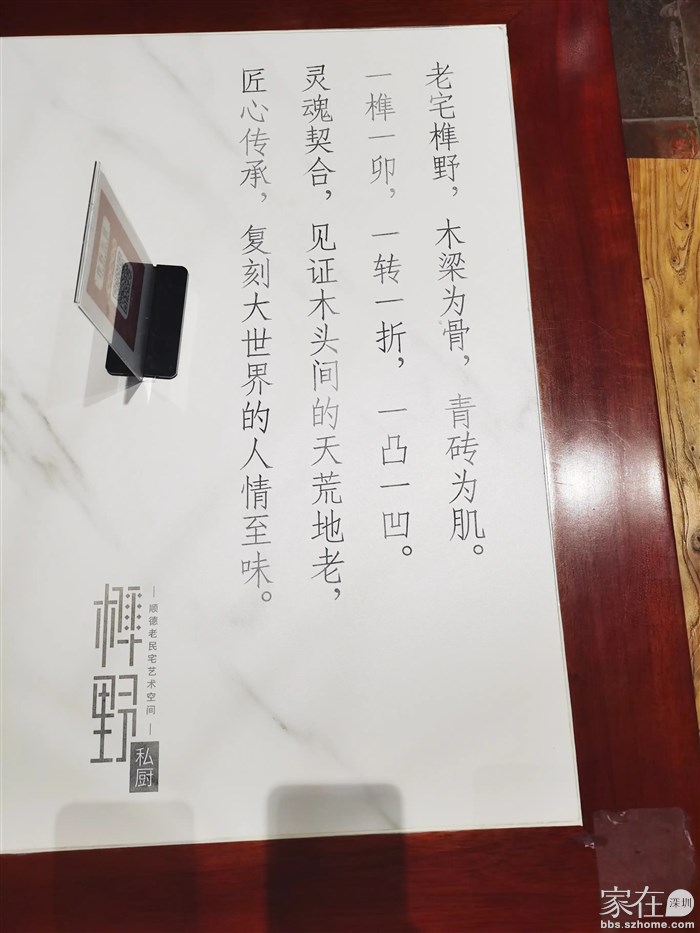 老宅榫野，木梁为骨，青砖为肌。
一榫一卯，一转一折，一凸一凹。
灵魂契合，见证木头间的天荒地老，
匠心传承，复刻大世界的人情至味。
榫野
—顺德老民宅艺术空间—
私厨
家在深圳
bbs.szhome.com